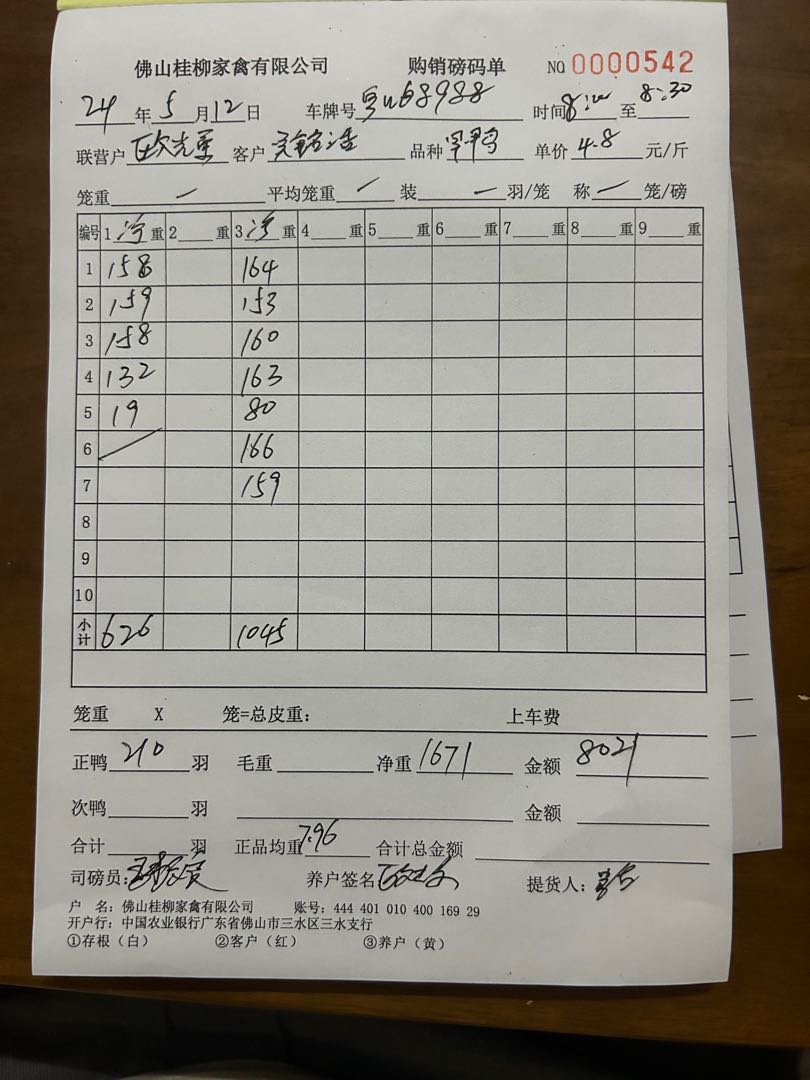 佛山桂柳家禽有限公司 购销磅码单 NO 0000542
24年5月12日 车牌号 68988 时间8:00至8:30
联营户 客户 品种 单价4.8元/斤
笼重 — 平均笼重 — 装 — 羽/笼 称 — 笼/磅
编号 1净重 2重 3净重 4重 5重 6重 7重 8重 9重
1 158 164
2 159 153
3 158 160
4 132 163
5 19 80
6 166
7 159
8
9
10
小计 626 1045
笼重 X 笼=总皮重: 上车费
正鸭210羽 毛重 净重1671 金额8021
次鸭 羽 金额
合计 羽 正品均重7.96 合计总金额
司磅员: 养户签名 提货人:
户 名: 佛山桂柳家禽有限公司 账号: 444 401 010 400 169 29
开户行: 中国农业银行广东省佛山市三水区三水支行
①存根(白) ②客户(红) ③养户(黄)